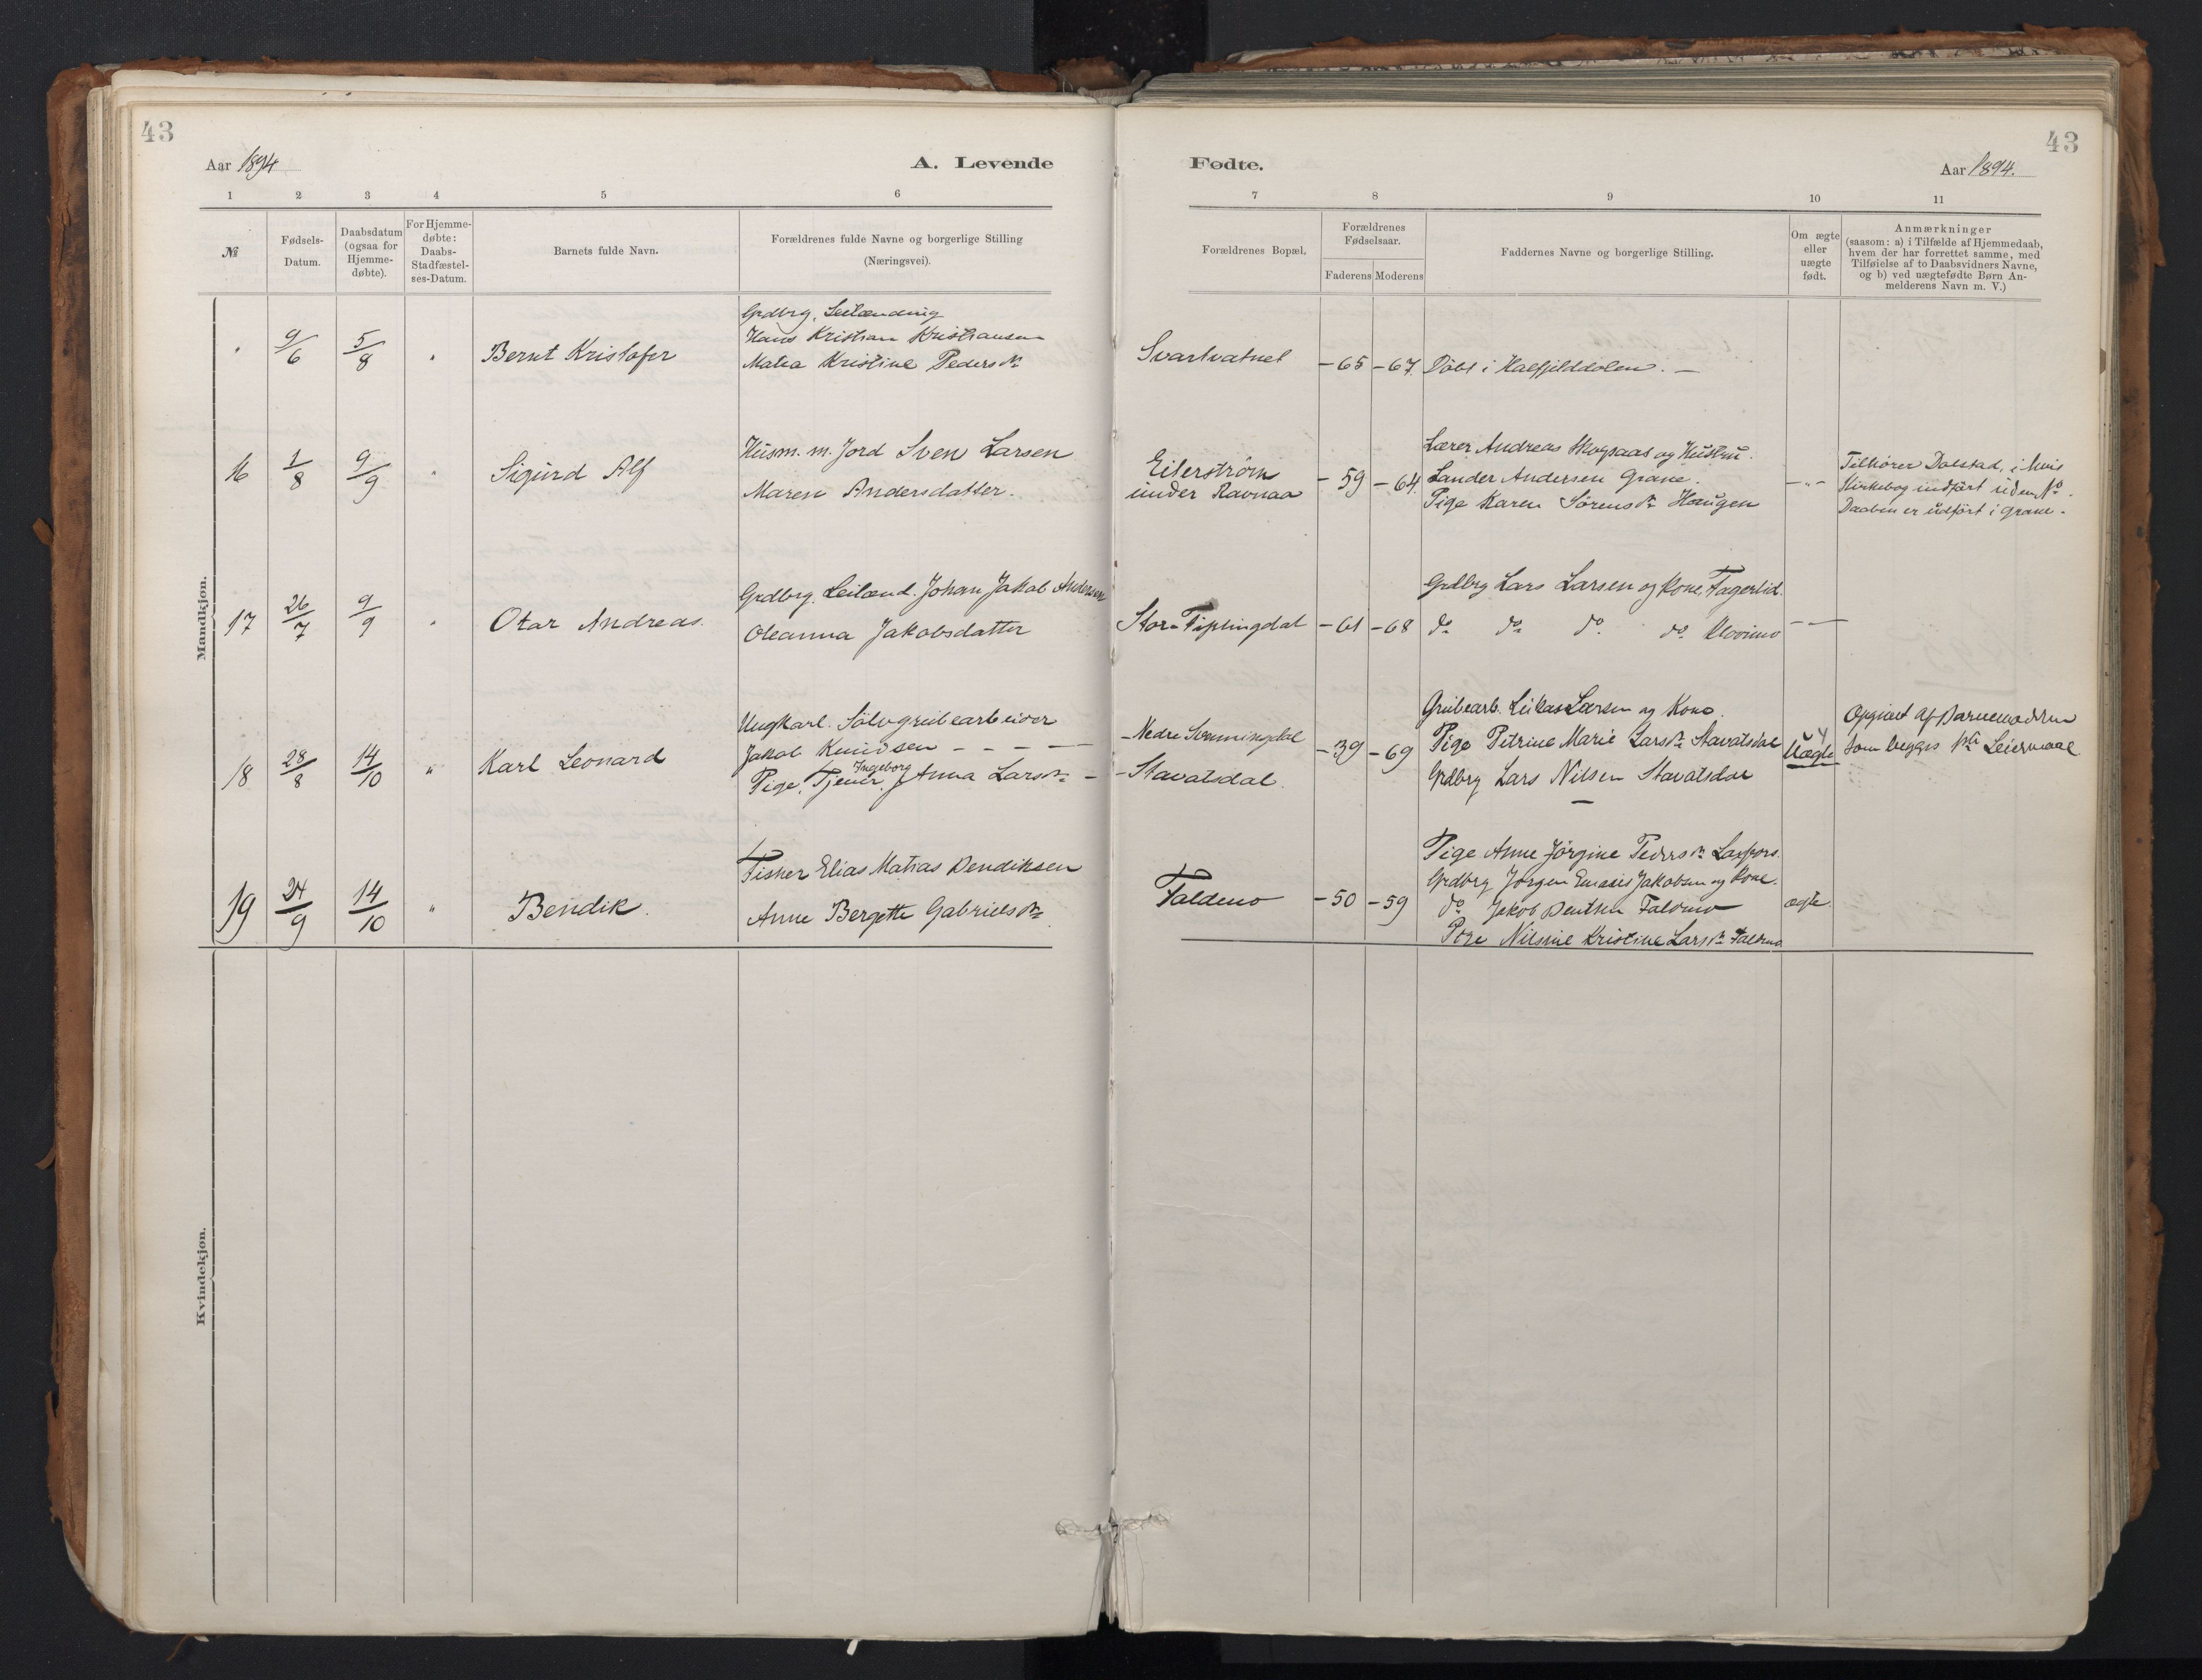 43
Aar 1894
A. Levende
1 2 3 4 5 6
№
Fødsels-Datum.
Daabsdatum (ogsaa for Hjemme-døbte).
For Hjemme-døbte: Daabs-Stadfæstel-ses-Datum.
Barnets fulde Navn.
Forældrenes fulde Navne og borgerlige Stilling (Næringsvei).
Mandkjøn.
" 9/6 5/8 " Bernt Kristofer
Grdbrg. Leilænding
Hans Kristian Kristiansen
Matea Kristine Pedersdr
16 1/8 9/9 " Sigurd Alf
Husm. m. Jord Sven Larsen
Maren Andersdatter.
17 26/7 9/9 " Otar Andreas.
Grdbrg. Leilænd. Johan Jakob Andersen
Oleanna Jakobsdatter
18 28/8 14/10 " Karl Leonard
Ungkarl. Sölvgrubearbeider
Jakob Knudsen - - - -
Pige, Tjener, Ingeborg Anna Larsdr -
19 24/9 14/10 " Bendik.
Fisker Elias Matias Bendiksen
Anne Bergette Gabrielsdr
Kvindekjøn.
43
Fødte.
Aar 1894.
7 8 9 10 11
Forældrenes Bopæl.
Forældrenes Fødselsaar.
Faderens Moderens
Faddernes Navne og borgerlige Stilling.
Om ægte eller uægte født.
Anmærkninger
(saasom: a) i Tilfælde af Hjemmedaab,
hvem der har forrettet samme, med
Tilføielse af to Daabsvidners Navne,
og b) ved uægtefødte Børn An-
melderens Navn m. V.)
Svartvatnet -65 -67. Döbt i Hatfjelddalen. -
Eilerström
under Ravnaa
-59 -64.
Lærer Andreas Skogsaas og Hustru.
Sander Andersen Grane.
Pige Karen Sörensdr Haugen
-"-
Tilhörer Dolstad, i hvis
Kirkebog indfört uden No.
Daaben er udfört i Grane.
Stor-Tiplingdal -61 -68
Grdbrg Lars Larsen og Kone, Fagerlid.
do do do do Klovimo
- -
-Nedre Svenningdal
-Stavatsdal.
-39 -69
Grubearb. Lukas Larsen og Kone.
Pige Petrine Marie Larsdr Stavatsdal
Grdbrg Lars Nilsen Stavatsdal
Uægte
Opgivet af Barnemodren
som begges 1ste Leiermaal
Faldmo -50 -59
Pige Anne Jörgine Pedersdr Laxfors.
Grdbrg Jörgen Jakobsen og Kone.
do Jakob Bentsen Faldmo
Pige Nilsine Kristine Larsdr Faldmo
ægte.